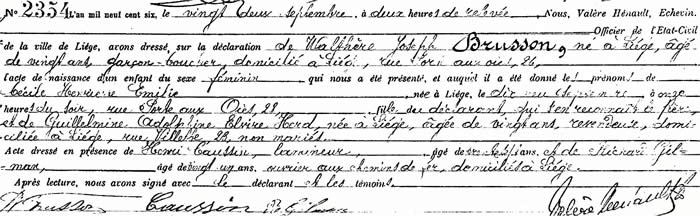 No 2354 L'an mil neuf cent six, le vingt deux septembre à deux heures de relevée, Nous, Valère Hénault, Echevin,
Officier de l'Etat-Civil
de la ville de Liége, avons dressé, sur la déclaration de Walthère Joseph Brusson, né à Liége, âgé
de vingt ans, garçon-boucher, domicilié à Liége, rue Porte aux oies, 26,
l'acte de naissance d'un enfant du sexe féminin qui nous a été présenté, et auquel il a été donné les prénoms de
Cécile Henriette Emilie née à Liége, le dix neuf septembre à onze
heures du soir, rue Porte aux Oies, 28, fille du déclarant, qui l'en reconnaît le père
et de Guillelmine Adolphine Elvire Hord, née à Liége, âgée de vingt ans, revendeuse, domi-
ciliée à Liége, rue Villette 23, non mariés.
Acte dressé en présence de Henri Caussin, lamineur, âgé de ans, et de Richard Gil-
man, âgé de vingt un ans, ouvrier aux chemins de fer, domiciliés à Liége.
Après lecture, nous avons signé avec le déclarant et les témoins.
W Brusson Caussin Valère Hénault